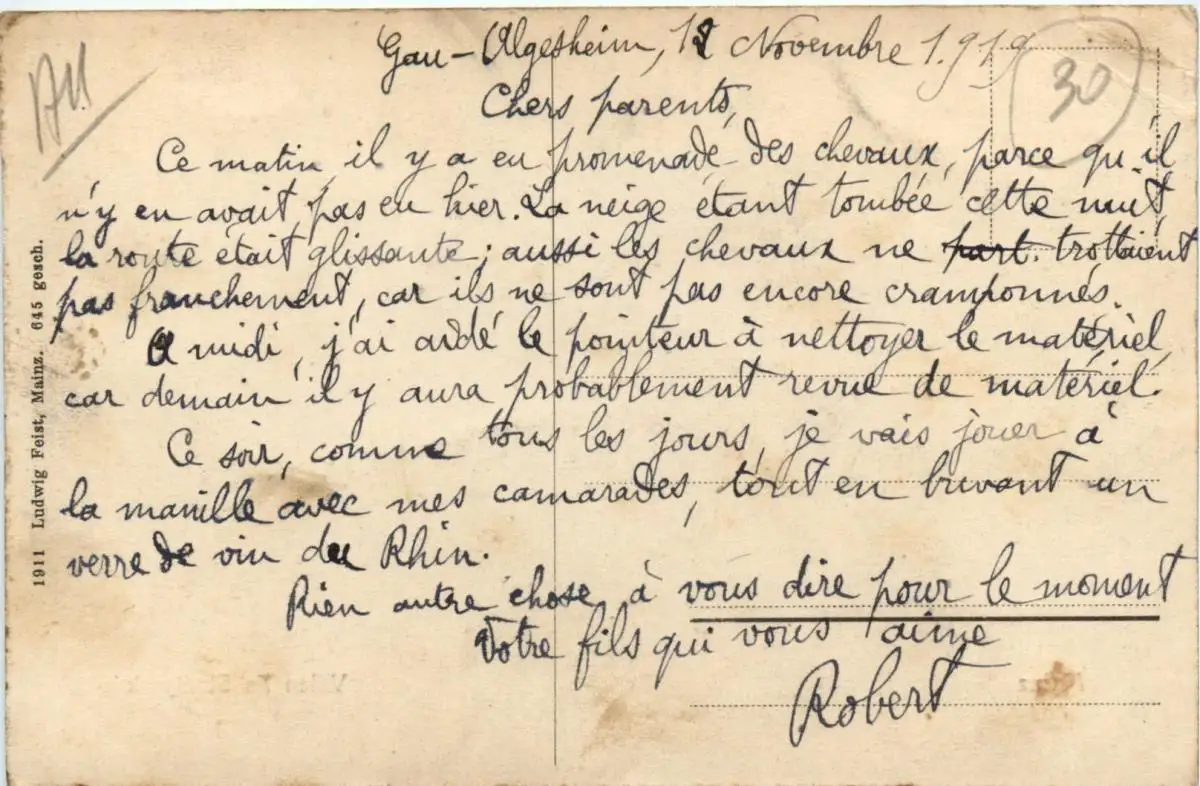 Gau-Algesheim, 18 Novembre 1919
30
Chers parents,
Ce matin, il y a eu promenade des chevaux, parce qu'il
n'y en avait pas eu hier. La neige étant tombée cette nuit,
la route était glissante; aussi les chevaux ne part trottaient
pas franchement, car ils ne sont pas encore cramponnés.
A midi, j'ai aidé le pointeur à nettoyer le matériel,
car demain il y aura probablement revue de matériel.
Ce soir, comme tous les jours, je vais jouer à
la manille avec mes camarades, tout en buvant un
verre de vin du Rhin.
Rien autre chose à vous dire pour le moment
Votre fils qui vous aime
Robert
1911 Ludwig Feist, Mainz. 645 gesch.